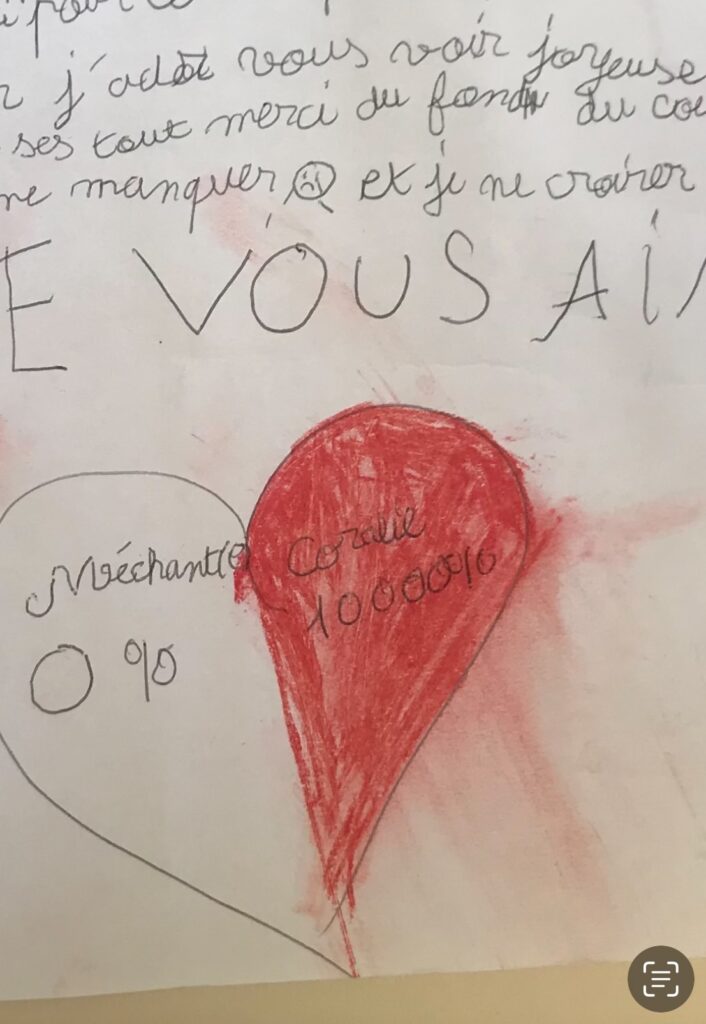 pour
j'adot vous voir joyeuse
ses tout merci du fond du cou
me manquer et je ne croirer
E VOUS AI
Méchant(e) Coralie
0 % 10000%